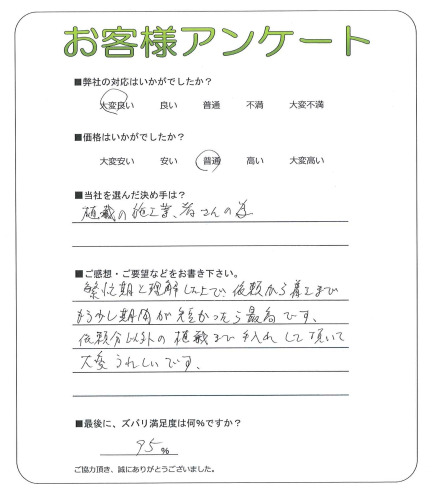 お客様アンケート
■弊社の対応はいかがでしたか?
大変良い 良い 普通 不満 大変不満
■価格はいかがでしたか?
大変安い 安い 普通 高い 大変高い
■当社を選んだ決め手は?
植栽の施工業者さんの為
■ご感想・ご要望などをお書き下さい。
繁忙期と理解した上で、依頼から着工まで
もう少し期間が短かったら最高です、
依頼分以外の植栽まで手入れして頂いて
大変うれしいです、
■最後に、ズバリ満足度は何%ですか?
95 %
ご協力頂き、誠にありがとうございました。